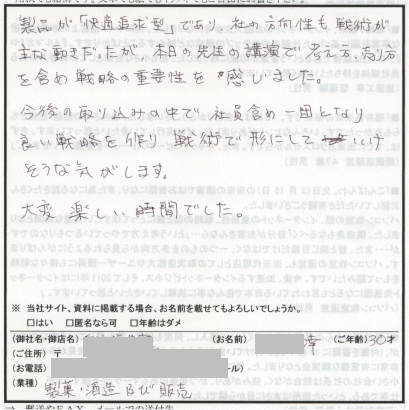 製品が「快適追求型」であり、社の方向性も戦術が
主な動きだったが、本日の先生の講演で考え方、売り方
を含め戦略の重要性を感じました。
今後の取り込みの中で、社員含め一団となり
良い戦略を作り戦術で形にしていけ
そうな気がします。
大変楽しい時間でした。
※ 当社サイト、資料に掲載する場合、お名前を載せてもよろしいでしょうか。
□はい □匿名なら可 □年齢はダメ
(御社名・御店名) (お名前) 幸 (ご年齢)30才
(ご住所) 〒
(お電話) ール)
(業種) 製薬・酒造及び販売